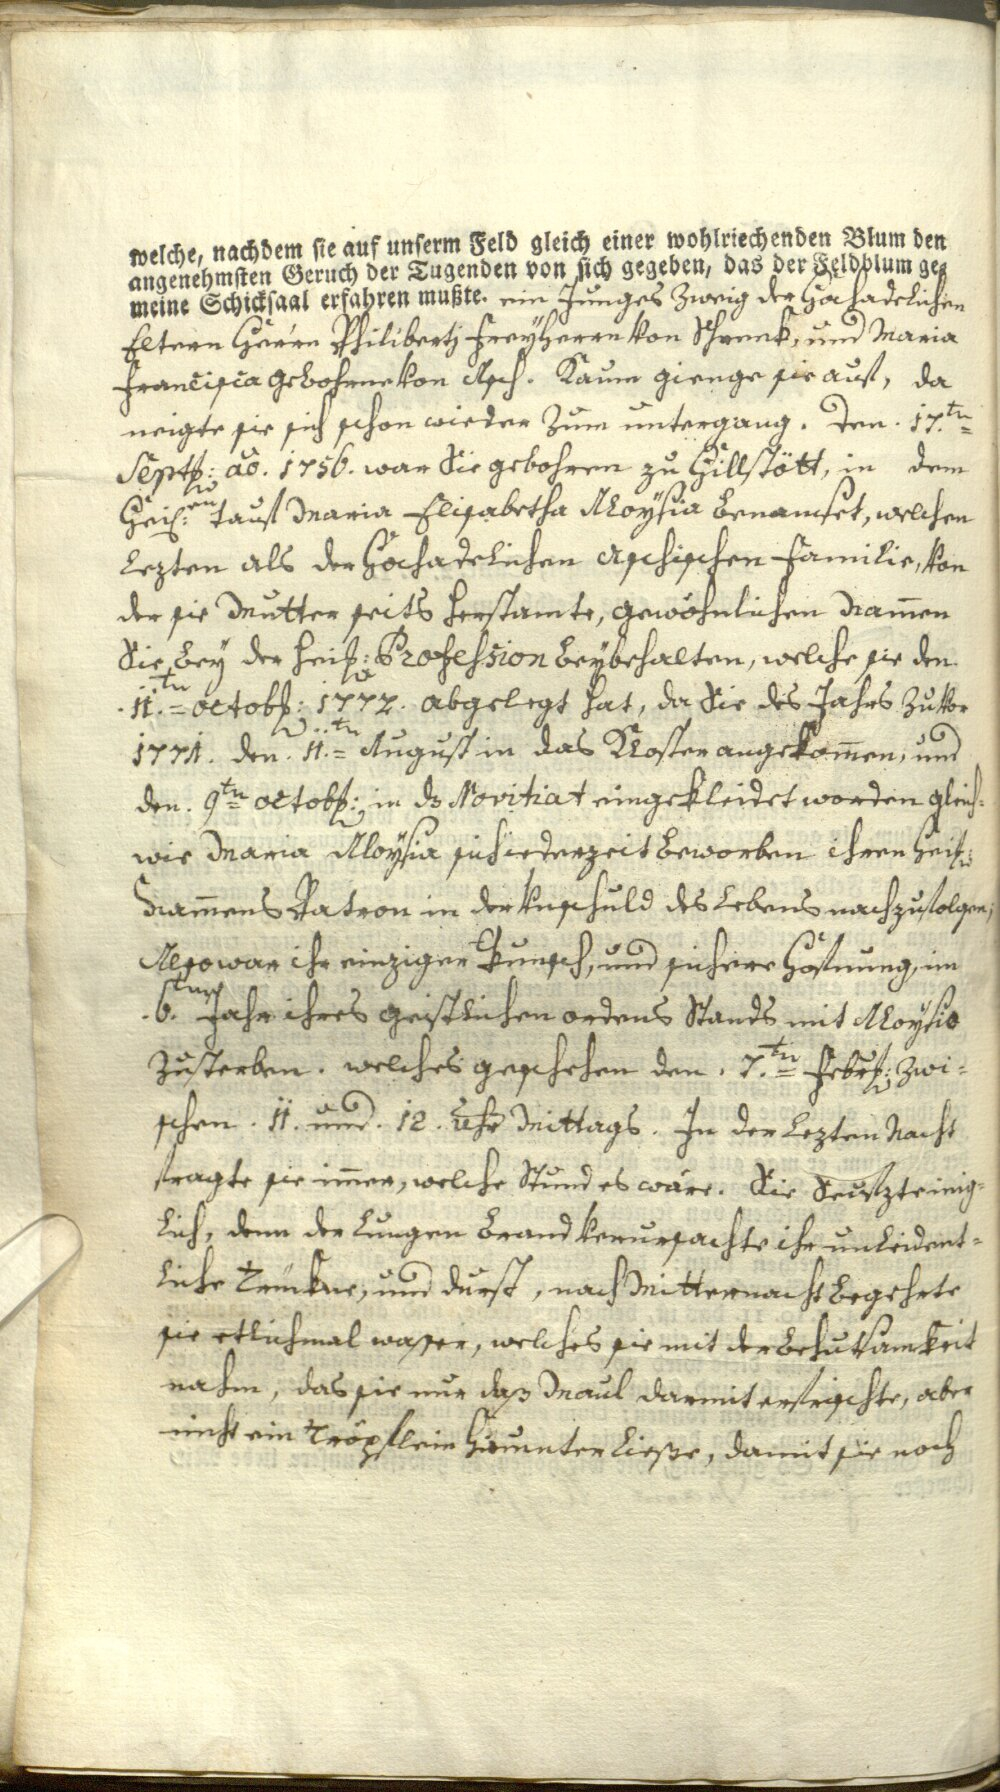 welche, nachdem sie auf unserm Feld gleich einer wohlriechenden Blum den
angenehmsten Geruch der Tugenden von sich gegeben, das der Feldblum ge-
meine Schicksaal erfahren mußte. ein Junges Zweig der Hochadelichen
Eltern Herrn Philibertj Freÿherrn von Schrenck, und Maria
Francisca gebohrne von Asch. Kaum gienge sie auf, da
neigte sie sich schon wieder zum untergang. Den. 17.tn
Septb: ao. 1756. war Sie gebohren zu Hillstött, in dem
Heil:en Tauf Maria Elisabetha Aloÿsia benamset, welchen
Lezten als der Hochadelichen Aschischen Familie, von
der sie Mutter seits herstamte, gewöhnlichen Namen
Sie, bey der Heil: Profession beybehalten, welche sie den
.11.tn octobr: 1772. abgelegt hat, da Sie des Jahrs zuvor
1771. den. 11.tn August in das Kloster angekomen, und
den. 9tn octobr: in ds Novitiat eingekleidet worden gleich-
wie Maria Aloÿsia sich iederzeit beworben ihren Heil:
Namens Patron in der Unschuld des Lebens nachzufolgen,
Also war ihr einziger Wunsch, und sichere Hofnung, im
.6. Jahr ihres geistlichen ordens Stands mit Aloysio
zusterben. welches geschehen den. 7.tn Febr: zwi-
schen. 11. und. 12. Uhr Mittags. In der Lezten Nacht
fragte sie imer, welche Stund es wäre. Sie Seufzte inig-
lich, denn der Lungen brand verursachte ihr unleident-
liche Trückne, und durst, nach Mitternacht begehrte
sie etlichmal wasser, welches sie mit der behutsamkeit
nahm, das sie nur das Maul darmit erfrischte, aber
nicht ein Tröpflein hinunter ließe, damit sie noch